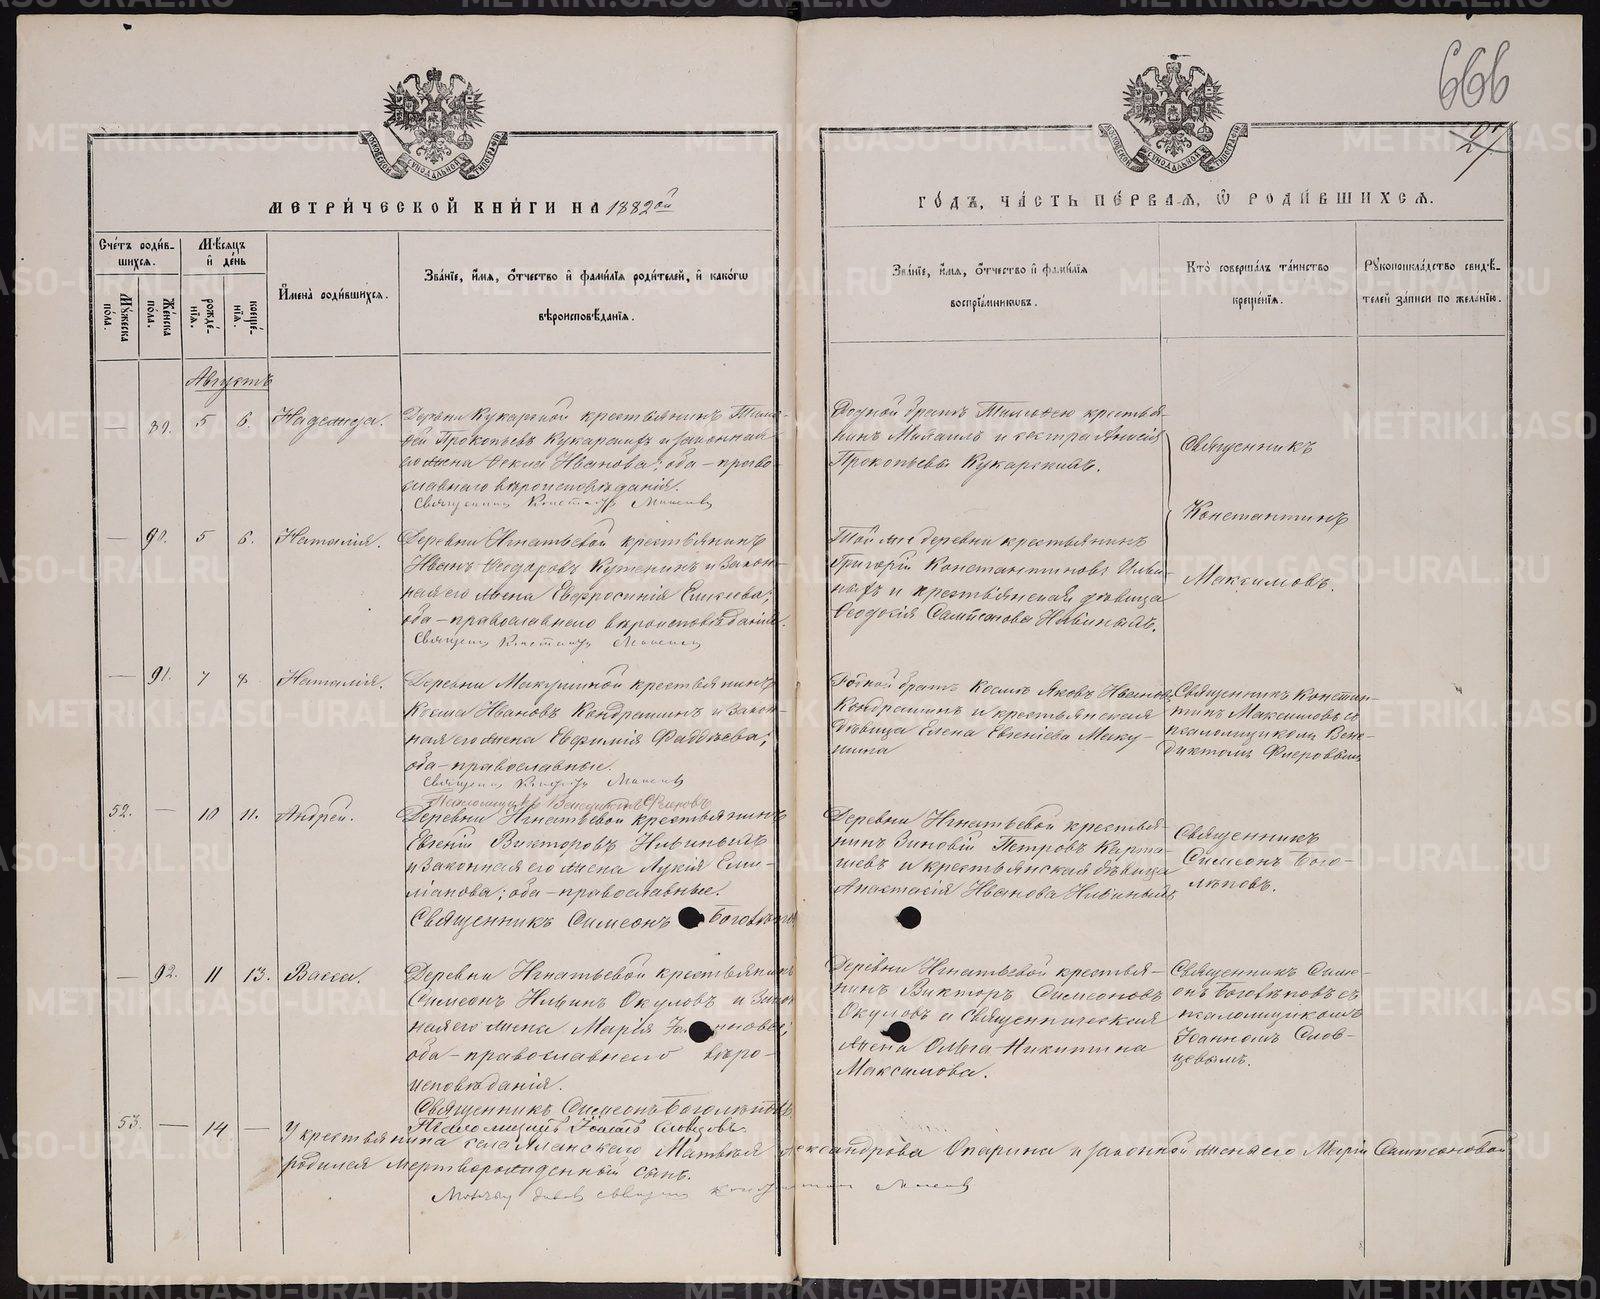 666
27
МЕТРИ́ЧЕСКОЙ КНИ́ГИ НА 1882ой
ГО́ДЪ, ЧА́СТЬ ПЕ́РВАЯ, Ѿ РОДИ́ВШИХСЯ.
Сче́тъ роди́в-
шихся.
Мѣ́сяцъ
и҆ де́нь
Мꙋжеска по́ла.
Же́нска по́ла.
рожде́-
нїя.
креще́-
нїя.
И҆мена̀ роди́вшихся.
Зва́нїе, и҆́мя, ѻ҆́тчество и҆ фами́лїя роди́телей, и҆ како́гѡ
вѣроисповѣ́данїя.
Зва́нїе, и҆́мя, ѻ҆́тчество и҆ фами́лїя
воспрїе́мникѡвъ.
Кто̀ соверша́лъ та́инство
креще́нїя.
Рꙋкоприкла́дство свидѣ́-
телей за́писи по жела́нїю.
Августъ
— 89. 5 6. Надежда.
Деревни Кукарской крестьянинъ Тимо-
фей Прокопьевъ Кукарскихъ и законная
его жена Фекла Иванова; оба – право-
славнаго вѣроисповѣданія.
Священникъ Константинъ Максимовъ
Родной братъ Тимофею крестья-
нинъ Михаилъ и сестра Анисія
Прокопьевы Кукарскихъ.
Священникъ
Константинъ
Максимовъ.
— 90. 5 6. Наталія.
Деревни Игнатьевой крестьянинъ
Иванъ Ѳеодоровъ и Закон-
ная его жена Евфросинія Елисеева;
оба – православнаго вѣроисповѣданія.
Священникъ Константинъ Максимовъ
Той же деревни крестьянинъ
Григорій Константиновъ Ильи-
ныхъ и крестьянская дѣвица
Ѳеодосія Самсонова Ильиныхъ.
— 91. 7 8. Наталія.
Деревни Макушиной крестьянинъ
Косма Ивановъ Кондрашинъ и Закон-
ная его жена Евфимія Фаддѣева;
оба – православные.
Священникъ Константинъ Максимовъ
Псаломщикъ Венедиктъ Флеровъ
Родной братъ Космы Яковъ Ивановъ
Кондрашинъ и крестьянская
дѣвица Елена Евгеніева Маку-
шина
Священникъ Констан-
тинъ Максимовъ съ
псаломщикомъ Вене-
диктомъ Флеровымъ
52. — 10 11. Андрей.
Деревни Игнатьевой крестьянинъ
Евгеній Викторовъ Ильиныхъ
и Законная его жена Лукія Еми-
ліанова; оба – православные.
Священникъ Симеонъ Боголѣповъ
Деревни Игнатьевой крестья-
нинъ Зиновій Петровъ Карта-
шевъ и крестьянская дѣвица
Анастасія Иванова Ильиныхъ
Священникъ
Симеонъ Бого-
лѣповъ.
— 92. 11 13. Васса.
Деревни Игнатьевой крестьянинъ
Симеонъ Ильинъ Окуловъ и Закон
ная его жена Марія
оба – православнаго вѣро-
исповѣданія.
Священникъ Симеонъ Боголѣповъ
Псаломщикъ Іоаннъ Словцовъ.
Деревни Игнатьевой крестья-
нинъ Викторъ Симеоновъ
Окуловъ и Священническая
жена Ольга Никитина
Максимова.
Священникъ Симе-
онъ Боголѣповъ съ
псаломщикомъ
Іоанномъ Слов-
цевымъ.
53. — 14 — У крестьянина села Матѳея Александрова Опарина и законной жены его Маріи Сампсоновой
родился мертворожденный сынъ.
Священникъ Константинъ Максимовъ